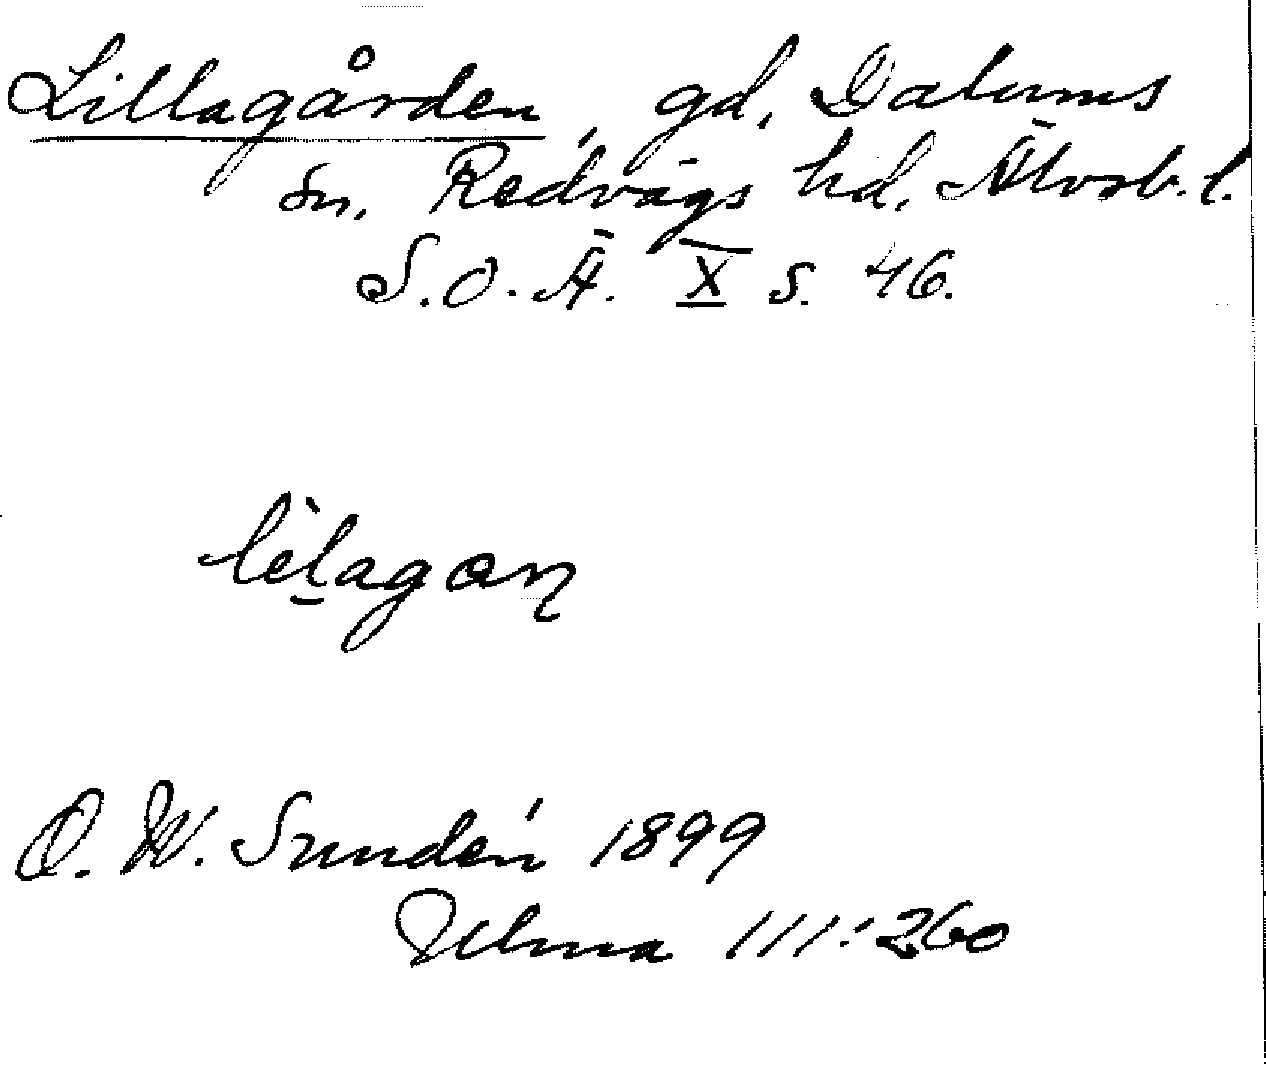 Lillagården, gd, Dalums
sn, Redvägs hd, Älvsb. l.
S.O.Ä. X s. 46.
lèlagan
O. W. Sundén 1899
Ulma 111:260